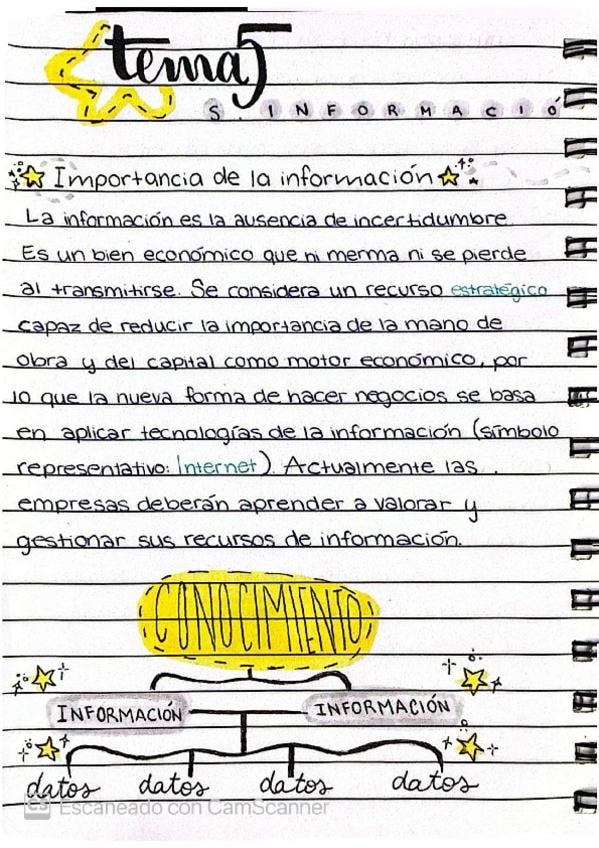 tema 5
S. INFORMACIÓ
Importancia de la información
La información es la ausencia de incertidumbre
Es un bien económico que ni merma ni se pierde
al transmitirse. Se considera un recurso estratégico
capaz de reducir la importancia de la mano de
obra y del capital como motor económico, por
lo que la nueva forma de hacer negocios se basa
en aplicar tecnologías de la información (símbolo
representativo: Internet). Actualmente las
empresas deberán aprender a valorar y
gestionar sus recursos de información.
CONOCIMIENTO
INFORMACIÓN INFORMACIÓN
datos datos datos datos
CS Escaneado con CamScanner